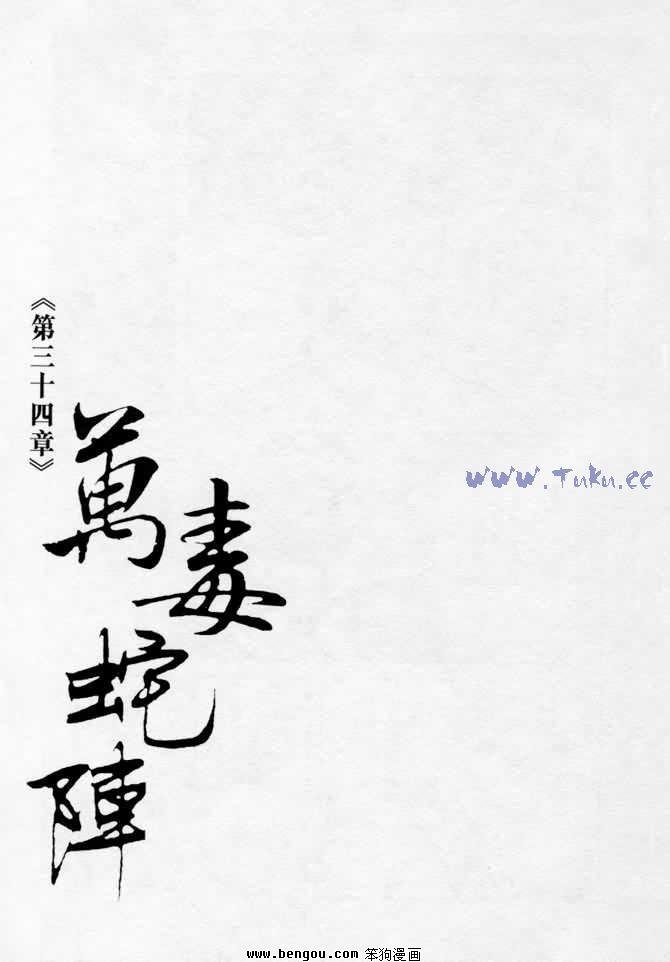 《第三十四章》
萬毒蛇陣
www.Tuku.cc
www.bengou.com 笨狗漫画